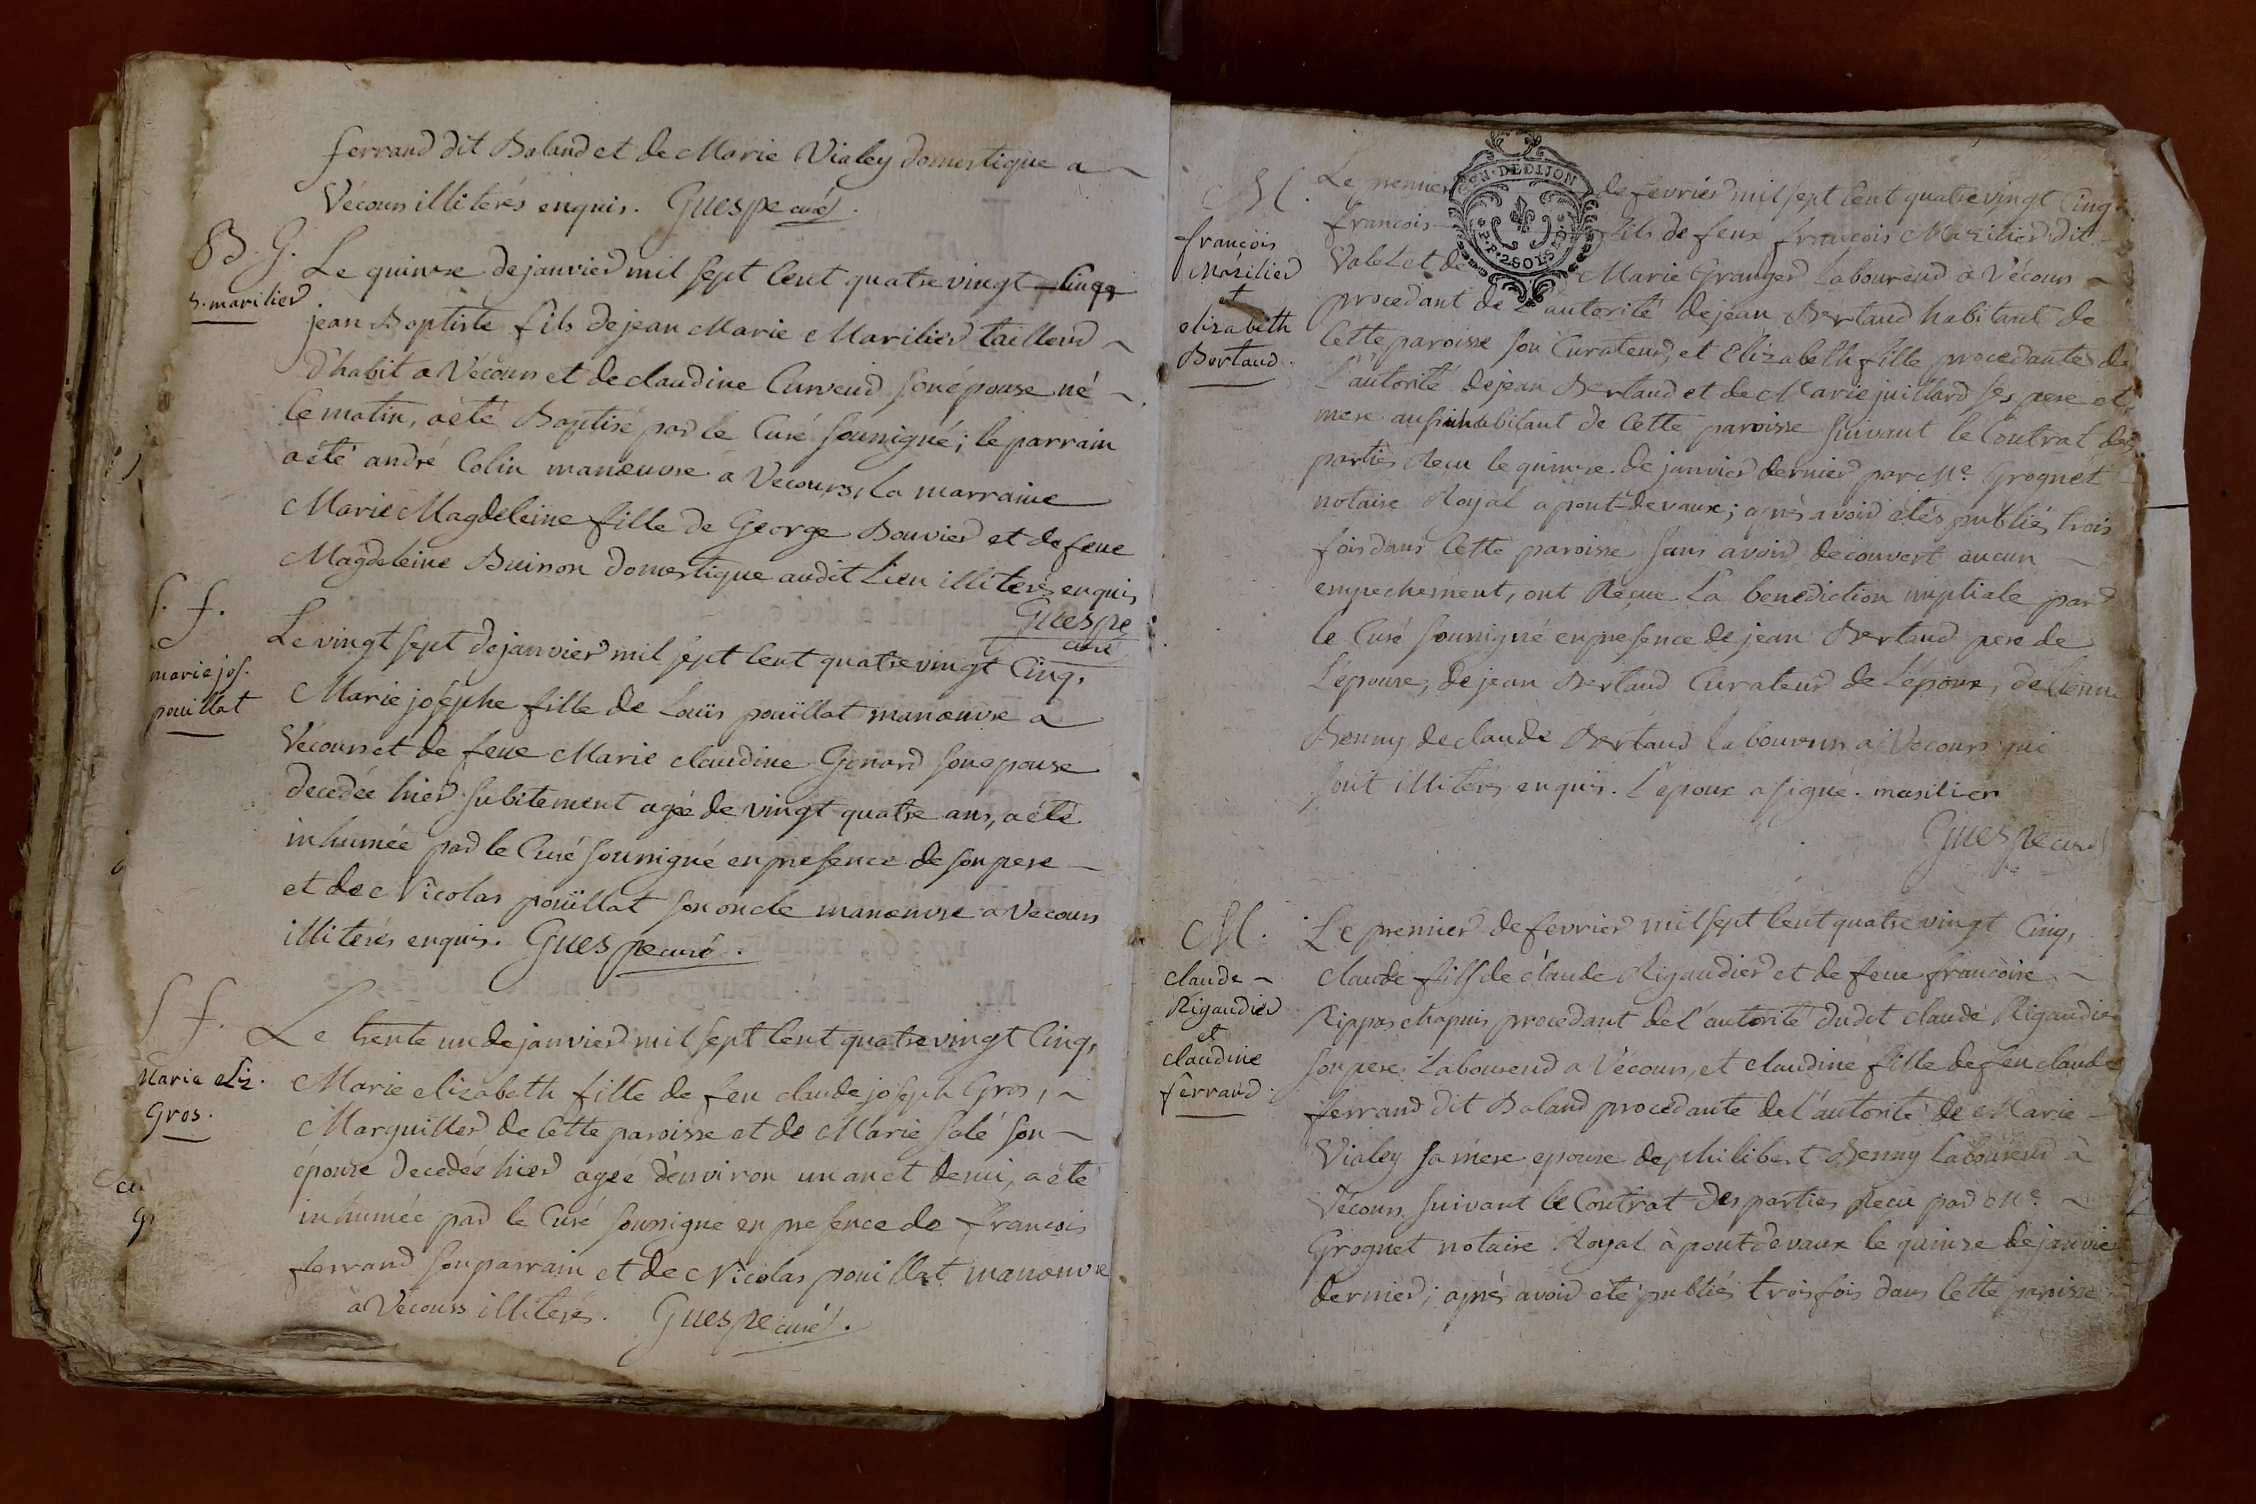 ferrand dit Baland et de Marie Vialey domestique a
Vécours illiterés enquis. Guespe curé.
B. G.
b. marilier.
Le quinze de janvier mil sept cent quatre vingt cinq
jean Baptiste fils de jean Marie Marilier tailleur
d'habit a Vécours et de claudine Curveur son épouse né
le matin, a été Baptisé par le Curé soussigné; le parrain
a été andré Colin manœuvre a Vecours, la marraine
Marie Magdeleine fille de George Bouvier et de feue
Magdeleine Buisson domestique audit Lieu illiterés enquis
Guespe
curé
S. f.
marie jos.
pouillat
Le vingt sept de janvier mil sept cent quatre vingt cinq,
Marie josephe fille de Louis pouillat manœuvre a
Vécours et de feue Marie claudine Gonard son epouse
decedée hier subitement agée de vingt quatre ans, a été
inhumée par le Curé soussigné en presence de son pere
et de Nicolas pouïllat son oncle manœuvre a Vecours
illiterés enquis. Guespe curé.
S f.
Marie eliz.
Gros.
Le trente un de janvier mil sept cent quatre vingt cinq,
Marie elizabeth fille de feu claude joseph Gros,
Marguiller de cette paroisse et de Marie Salé son
épouse decedée hier agée d'environ un an et demi, a été
inhumée par le Curé soussigne en presence de francois
ferrand son parrain et de Nicolas pouillat manœuvre
à Vécours illiterés. Guespe curé.
M.
françois
Marilier
et
elizabeth
Bertaud.
GEN. DE DIJON
2 SOLS
Le premier de fevrier mil sept cent quatre vingt cinq
francois fils de feux francois Marilier dit
Valet et de Marie Granger Laboureur a Vécours
procedant de L'autorité de jean Bertaud habitant de
cette paroisse son Curateur, et Elizabeth fille procedante de
L'autorité de jean Bertaud et de Marie juillard ses pere et
mere aussi habitant de cette paroisse suivant le Contrat des
parties Recu le quinze de janvier dernier par Me. Grognet
notaire Royal a pont-de vaux; après avoir étés publiés trois
fois dans cette paroisse sans avoir decouvert aucun
empechement, ont Reçue La benediction nuptiale par
le Curé soussigné en presence de jean Bertaud pere de
L'épouse, de jean Bertaud Curateur de L'epoux,
Benny, de claude Bertaud laboureurs a Vecours qui
sont illiterés enquis. L'epoux a signé. marilier
Guespe curé
M.
claude
Rigaudier
et
claudine
ferrand.
Le premier de fevrier mil sept cent quatre vingt Cinq,
claude fils de claude Rigaudier et de feue francoise
Rippas chapuis procedant de L'autorité dudit claude Rigaudier
son pere Laboureur a Vécours, et claudine fille de feu claude
ferrand dit Baland procedante de l'autorité de Marie
Vialey sa mere epouse de philibert Benny Laboureur à
Vécours suivant le Contrat des parties Recu par Me.
Grognet notaire Royal à pont de vaux le quinze de janvier
dernier; aprés avoir été publiés trois fois dans cette paroisse